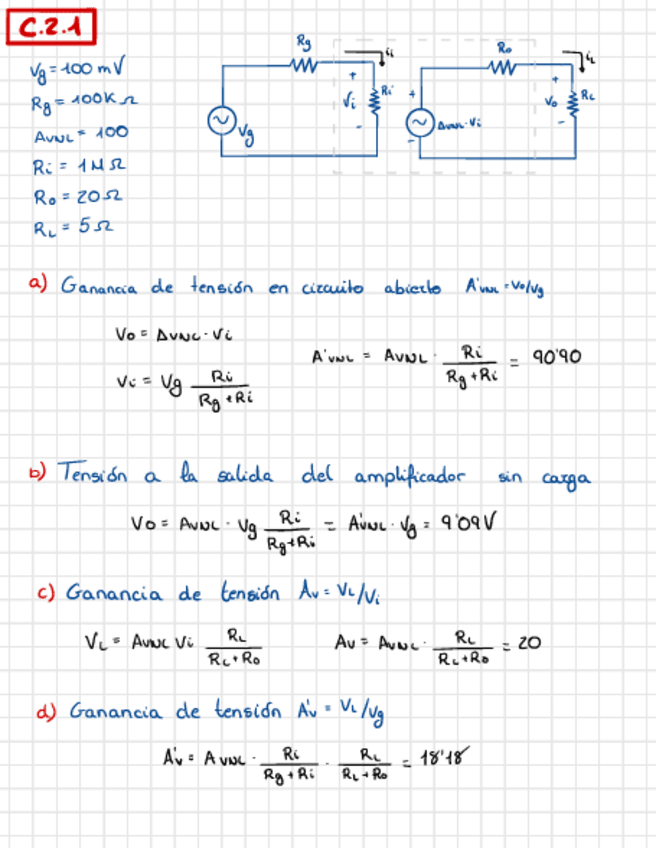 C.2.1
Vg = 100 mV
Rg = 100K Ω
AVNL = 100
Ri = 1MΩ
Ro = 20Ω
RL = 5Ω
Rg ii Ro iL
+ Vi - Ri + - AVNL·Vi + Vo - RL
Vg
a) Ganancia de tensión en circuito abierto A'VNL = Vo/Vg
Vo = AVNL · Vi
Vi = Vg Ri / Rg + Ri
A'VNL = AVNL · Ri / Rg + Ri = 90'90
b) Tensión a la salida del amplificador sin carga
Vo = AVNL · Vg Ri / Rg+Ri = A'VNL · Vg = 9'09V
c) Ganancia de tensión Av = VL/Vi
VL = AVNL Vi RL / RL + Ro Av = AVNL · RL / RL + Ro = 20
d) Ganancia de tensión A'v = VL/Vg
A'v = AVNL · Ri / Rg + Ri · RL / RL + Ro = 18'18